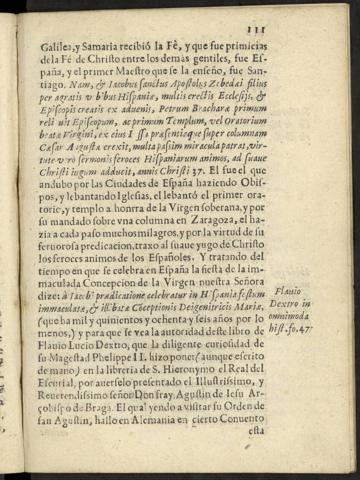 111
Galilea, y Samaria recibiò la Fè, y que fue primicias
de la Fé de Christo entre los demàs gentiles, fue Es-
paña, y el primer Maestro que se la enseño, fue San-
tiago. Nam, & Iacobus sanctus Apostolus Zebedai filius
per agratis v bibus Hispaniæ, multis erectis Ecclesijs, &
Episcopis creatis ex aduenis, Petrum Bracharæ primum
reli uit Episcopum, ac primum Templum, vel Oratorium
beatæ Virgini, ex eius præsentiæque super columnam
Cæsar Augustæ erexit, multa passim miracula patrat, vir-
tute verò sermonis feroces Hispaniarum animos, ad suaue
Christi iugum adducit, annis Christi 37. El fue el que
andubo por las Ciudades de España haziendo Obis-
pos, y lebantando Iglesias, el lebantò el primer ora-
toric, y templo a honrra de la Virgen soberana, y por
su mandado sobre vna columna en Zaragoza, el ha-
zia a cada paso muchos milagros, y por la virtud de su
feruorosa predicacion, traxo al suaue yugo de Christo
los feroces animos de los Españoles. Y tratando del
tiempo en que se celebra en España la fiesta de la im-
maculada Concepcion de la Virgen nuestra Señora
dize: à Iacobi prædicatione celebratur in Hispania festum
immaculatæ, & illibatæ Cõceptionis Deigenitricis Mariæ,
(que ba mil y quinientos, y ochenta y seis años por lo
menos,) y para que se vea la autoridad deste libro de
Flauio Lucio Dextro, que la diligente curiosidad de
su Magestad Phelippe II. hizo poner (aunque escrito
de mano) en la libreria de S. Hieronymo el Real del
Escurial, por auerselo presentado el Illustrissimo, y
Reuerendissimo señor Don fray Agustin de Iesu Ar-
çobispo de Braga. El qual yendo a visitar su Orden de
san Agustin, hallo en Alemania en cierto Conuento
esta
Flauio
Dextro in
omnimoda
hist. fo. 47